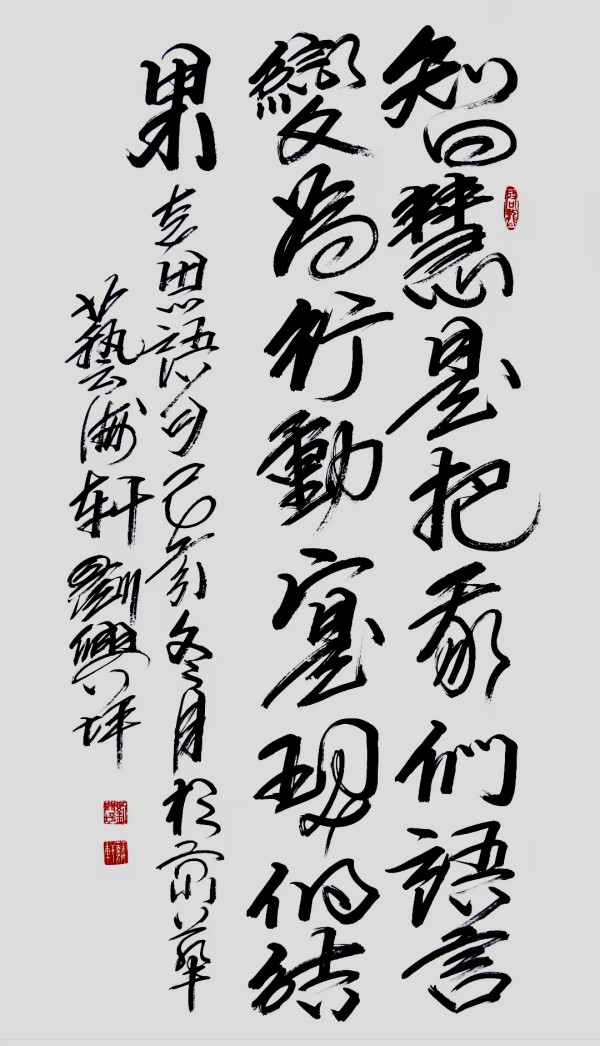 智慧是把我們語言
變為行動實現的結
果 思語句己亥冬月於華
藝海軒劉興坪